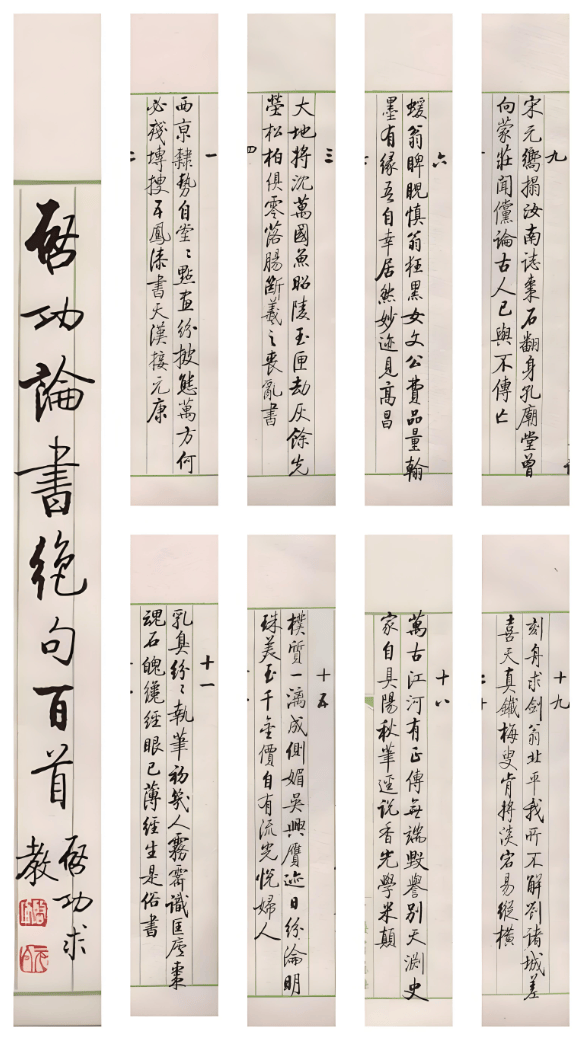 啟功論書絕句百首
啟功求
教
一
西京隸勢自堂〻點畫紛披態萬方何
必殘磚搜五鳳漆書天漢接元康
二
三
大地將沉萬國魚昭陵玉匣劫灰餘先
塋松柏俱零落腸斷羲之喪亂書
四
六
蝯翁睥睨慎翁狂黑女文公費品量翰
墨有緣吾自幸居然妙迹見高昌
九
宋元嚮搨汝南誌棗石翻身孔廟堂曾
向蒙莊聞儻論古人已與不傳亡
十一
乳臭紛〻執筆初幾人霧霽識匡廬棗
魂石魄纔經眼已薄經生是俗書
十五
樸質一漓成側媚吳興贗迹日紛淪明
珠美玉千金價自有流光悅婦人
十八
萬古江河有正傳無端毀譽別天淵史
家自具陽秋筆逕說香光學米顛
十九
刻舟求劍翁北平我所不解劉諸城差
喜天真鐵梅叟肯將淡宕易縱橫
二十